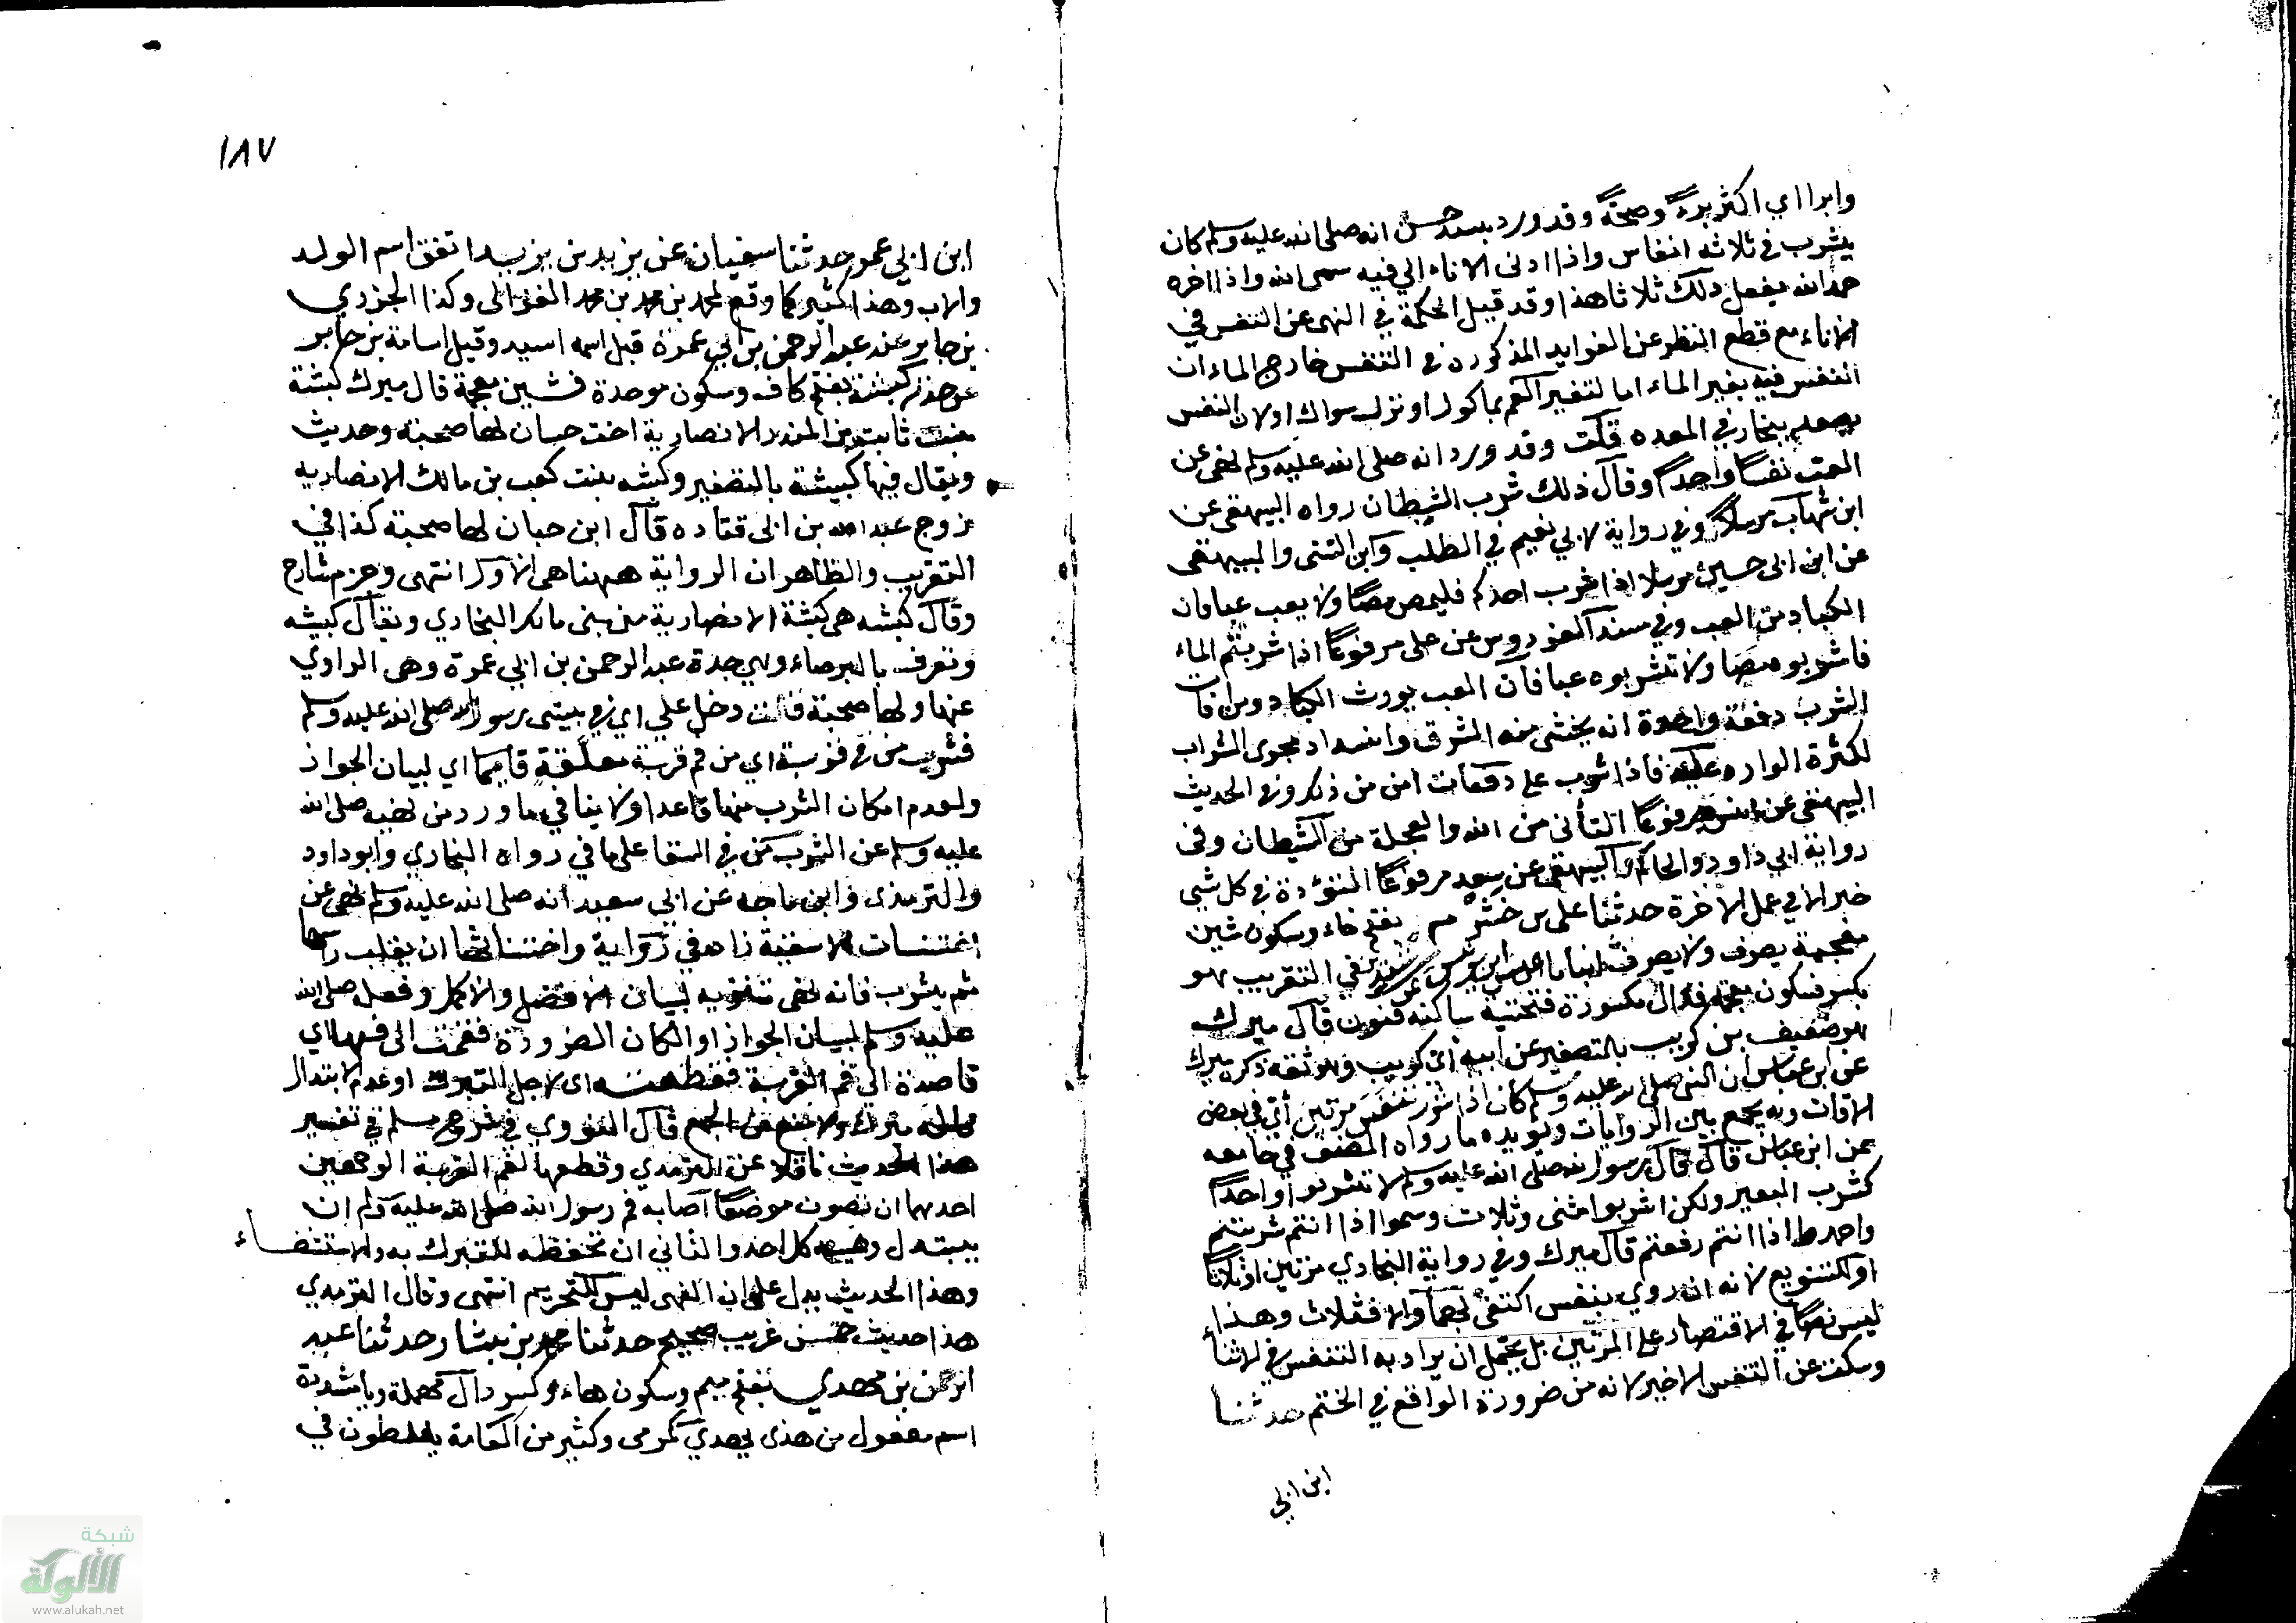 وابرا اي اكثر برءً وصحةً وقد ورد بسند حسن انه صلى الله عليه وسلم كان
يشرب في ثلاثه انفاس واذا ادنى الاناء الي فيه سمى الله واذا اخره
حمد الله يفعل ذلك ثلاثا هذا وقد قيل الحكمة في النهى عن التنفس في
الاناء مع قطع النظر عن الفوايد المذكوره في التنفس خارج الماء ان
التنفس فيه يغير الماء اما لتغير الفم بماكول او نزك سواك او لان النفس
يصعد ببخار في المعده قلت وقد ورد انه صلى الله عليه وسلم نهى عن
العب نفسًا واحدًا وقال ذلك شرب الشيطان رواه البيهقى عن
ابن شهاب مرسلاً وفي رواية لابي نعيم في الطلب وابن السنى والبيهقى
عن ابن ابى حسين مرسلا اذا شرب احدكم فليمص مصًا ولا يعب عبا فان
الكباد من العب وفي مسند الفردوس عن على مرفوعًا اذا شربتم الماء
فاشربوه مصا ولا تشربوه عبا فان العب يورث الكباد ومن افات
الشرب دفعة واحدة انه يخشى منه الشرق وانسداد مجرى الشراب
لكثرة الوارد عليه فاذا شرب على دفعات امن من ذلك وفي الحديث
البيهقى عن انس مرفوعًا التأنى من الله والعجلة من الشيطان وفى
رواية ابي داود والحاكم والبيهقى عن سعد مرفوعًا التؤدة في كل شي
خير الا في عمل الاخرة حدثنا على بن خشرم بفتح خاء وسكون شين
معجمة يصرف ولا يصرف انبانا عيسى بن يونس عن رشدين في التقريب هو
بكسر فسكون معجمة فدال مكسورة فتحتية ساكنه فنون قال ميرك
هو ضعيف بن كريب بالتصغير عن ابيه اى كريب وهو ثقه ذكره ميرك
عن ابن عباس ان النبى صلى الله عليه وسلم كان اذا شرب تنفس مرتين أي في بعض
الاوقات وبه يجمع بين الروايات ويؤيده ما رواه المصنف في جامعه
عن ابن عباس قال قال رسول الله صلى الله عليه وسلم لا تشربوا واحدًا
كشرب البعير ولكن اشربوا مثنى وثلاث وسموا اذا انتم شربتم
واحمدوا اذا انتم رفعتم قال ميرك وفي رواية البخاري مرتين او ثلاثًا
او للتنويع لانه ان روي بنفس اكتفى بهما والا فثلاث وهذا
ليس نصًا في الاقتصار على المرتين بل يحتمل ان يراد به التنفس في الاثناء
وسكت عن التنفس الاخير لانه من ضرورة الواقع في الختم حدثنا
ابن ابي
١٨٧
ابن ابي عمر حدثنا سفيان عن يزيد بن يزيد اتفق اسم الولد
والاب وهذا كثير كما وقع لمحمد بن محمد بن محمد الغزالى وكذا الجزري
بن جابر عن عبد الرحمن بن ابي عمرة قيل اسمه اسيد وقيل اسامة بن جابر
عن جدته كبشة بفتح كاف وسكون موحدة فشين معجمة قال ميرك كبشة
بنت ثابت بن المنذر الانصارية اخت حسان لها صحبة وحديث
ويقال فيها كبيشة بالتصغير وكبشه بنت كعب بن مالك الانصاريه
زوج عبد الله بن ابى قتاده قال ابن حبان لها صحبة كذا في
التقريب والظاهر ان الرواية ههنا هى الاول انتهى وجزم شارح
وقال كبشه هى كبشة الانصارية من بنى مالك النجاري ويقال كبيشه
وتعرف بالبرصاء وهي جدة عبد الرحمن بن ابي عمرة وهى الراوي
عنها ولها صحبة قالت دخل علي اي في بيتى رسول الله صلى الله عليه وسلم
فشرب من في قربة اي من فم قربة معلقة قايما اي لبيان الجواز
ولعدم امكان الشرب منها قاعدا ولا ينافي ما ورد من نهيه صلى الله
عليه وسلم عن الشرب من في السقا على ما في رواه البخاري وابو داود
والترمذى وابن ماجه عن ابي سعيد انه صلى الله عليه وسلم نهى عن
اختناث الاسقية زاد في رواية واختناثها ان يقلب راسها
ثم يشرب فانه نهى تنزيه لبيان الافضل والاكمل وفعله صلى الله
عليه وسلم لبيان الجواز او لمكان الضرورة فقمت الى فيها اي
قاصدة الي فم القربة فقطعته اى لاجل التبرك او عدم الابتدال
ميرك ولا منع من الجمع قال النووي في شرح مسلم في تفسير
هذا الحديث ناقلا عن الترمدي وقطعها لفم القربة الوجهين
احدهما ان تصون موضعًا اصابه فم رسول الله صلى الله عليه وسلم ان
يبتدل ويمسه كل احد والثاني ان تحفظه للتبرك به والاستشفاء
وهذا الحديث يدل على ان النهى ليس للتحريم انتهى وقال الترمدي
هذا حديث حسن غريب صحيح حدثنا محمد بن بشار حدثنا عبد
الرحمن بن مهدي بفتح ميم وسكون هاء وكسر دال مهملة ويا مشددة
اسم مفعول من هدى يهدي كرمى وكثير من العامة يغلطون في
شبكة
الألوكة
www.alukah.net